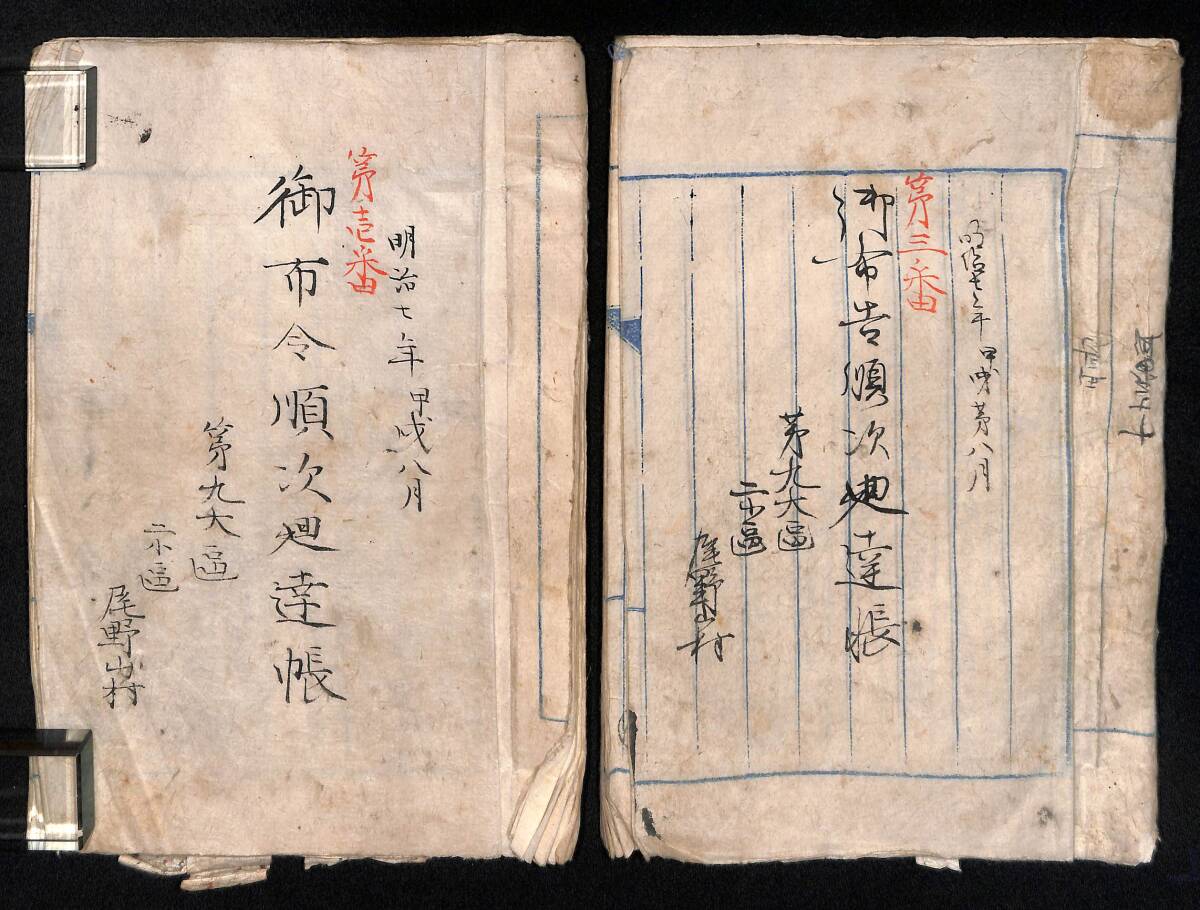 第壱番
明治七年甲戌八月
御布令順次廻達帳
第九大區
二小區
尾野山村
第三番
明治七年甲戌第八月
御布告順次廻達帳
第九大區
二小區
尾野山村